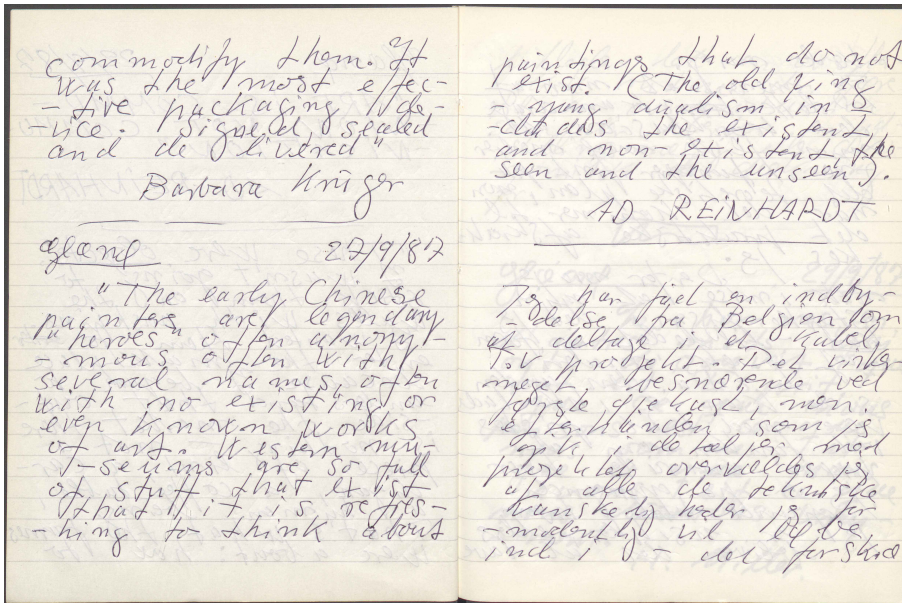 commodify them. It
was the most effec-
-tive packaging de-
-vice. Signed, sealed
and delivered"
Barbara Krüger
Øland 27/9/87
"The early Chinese
painters are legendary
"heroes" often anony-
-mous often with
several names, often
with no existing or
even known works
of art. Western mu-
-seums are so full
of stuff that exist
that it is refres-
-hing to think about
paintings that do not
exist. (The old ying
-yang dualism in-
-cludes the existent
and non-existent, the
seen and the unseen).
AD REINHARDT
Jeg har fået en indby-
-delse fra Belgien om
at deltage i et Kabel
TV projekt. Det virker
meget besnærende ved
første øjekast, men
efterhånden som jeg
gik i detaljer med
projektet overvældes jeg
af alle de tekniske
vanskeligheder jeg for-
-modentlig vil løbe
ind i - det